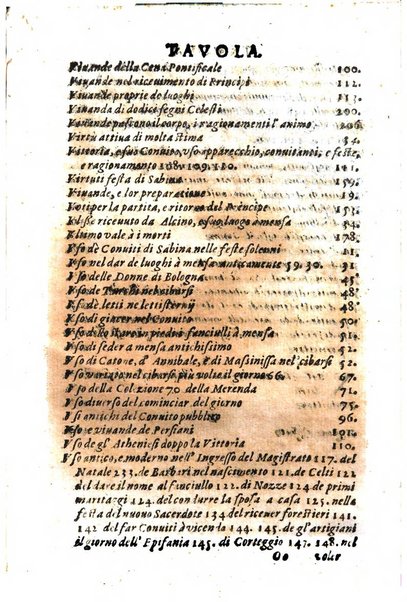 TAVOLA
Viuande della Cena Pontificale 100.
Viuande nel riceuimento di Principi 112.
Viuande proprie de luoghi 113.
Viuanda di dodici segni Celesti 200.
Viuande pascono il corpo, i ragionamenti l'animo 206.
Virtù attiua di molta stima 34.
Vittoria, e suo Conuito, uso apparecchio, conuitandi, e feste,
e ragionamento 108. 109. 110. 111.
Virtuti festa di Sabina 159.
Viuande, e lor preparatione 19.
Voti per la partita, e ritorno del Principe 153.
Vlisse riceuuto da Alcino, e suo luogo à mensa 34.
Vltimo vale à i morti 178.
Vso de Conuiti di Sabina nelle feste solenni 11.
Vso nel dar de luoghi à mensa anticamente 59. 30. 31.
Vso delle Donne di Bologna 45.
Vso de Turchi nel cibarsi 48.
Vso de letti ne lettisternij 48.
Vso di giacer nel Conuito 50.
Vso dello stare in piedi i fanciulli à mensa 51.
Vso di seder a mensa antichissimo 51.
Vso di Catone, d'Annibale, e di Massinissa nel cibarsi 52.
Vso vario nel cibarse più volte il giorno 66. 67.
Vso della Colezione 70 della Merenda 71.
Vso diuerso del cominciar del giorno 75.
Vsi antichi del Conuito publico 96.
Vso e viuande de Persiani 101.
Vso de gl'Atheniesi doppo la Vittoria 110.
Vso antico, e moderno nell'Ingresso del Magistrato 117. del
Natale 233. de Barbari nel nascimento 121. de Celti 122
del dare il nome al fanciullo 122. di Nozze 124 de primi
martiaggi 124. del condurre la sposa a casa 125. nella
festa del nuouo Sacerdote 134 del riceuer forestieri 141.
142 del far Conuiti à vicenda 144. 145. de gl'artigiani
il giorno dell'Epifania 145. di Corteggio 147. 148. nel
Oo voler